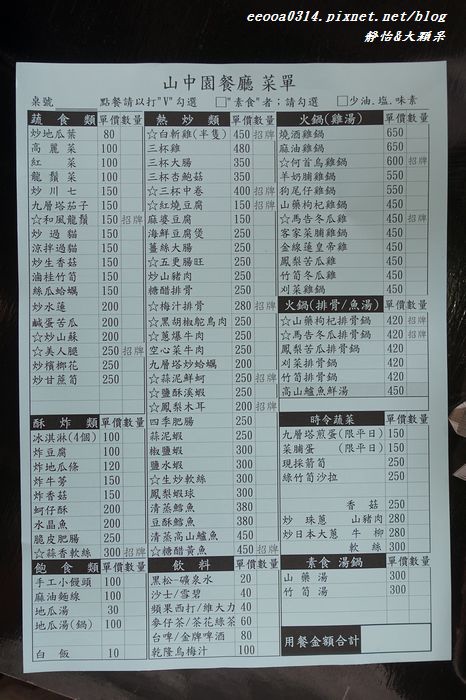 eeooa0314.pixnet.net/blog
靜怡&大顆呆
山中園餐廳 菜單
桌號 點餐請以打"V"勾選 □"素食"者；請勾選 □少油.塩.味素
蔬食類 單價 數量
炒地瓜葉 80
高麗菜 100
紅菜 100
龍鬚菜 100
炒川七 150
九層塔茄子 150
☆和風龍鬚 150 招牌
炒過貓 150
涼拌過貓 150
炒生香菇 150
滷桂竹筍 150
絲瓜蛤蠣 150
炒水蓮 200
鹹蛋苦瓜 200
☆炒山蘇 200
☆美人腿 250 招牌
炒檳榔花 250
炒甘蔗筍 250
酥炸類 單價 數量
冰淇淋(4個) 100
炸豆腐 100
炸地瓜條 120
炸牛蒡 150
炸香菇 150
蚵仔酥 200
水晶魚 200
脆皮肥腸 250
☆蒜香軟絲 300 招牌
飽食類 單價 數量
手工小饅頭 100
麻油麵線 100
地瓜湯 30
地瓜湯(鍋) 100
白飯 10
熱炒類 單價 數量
☆白斬雞(半隻) 450 招牌
三杯雞 480
三杯大腸 350
三杯杏鮑菇 350
☆三杯中卷 400 招牌
☆紅燒豆腐 150 招牌
麻婆豆腐 150
海鮮豆腐煲 250
薑絲大腸 250
☆五更腸旺 250
炒山豬肉 250
糖醋排骨 250
☆梅汁排骨 280 招牌
☆黑胡椒鴕鳥肉 250
☆蔥爆牛肉 250
空心菜牛肉 250
九層塔炒蛤蠣 200
☆蒜泥鮮蚵 250 招牌
☆鹽酥溪蝦 250
☆鳳梨木耳 200 招牌
四季肥腸 250
蒜泥蝦 300
椒鹽蝦 300
鹽水蝦 300
☆生炒軟絲 300
鳳梨蝦球 300
清蒸鱈魚 380
豆酥鱈魚 380
清蒸高山鱸魚 450
☆糖醋黃魚 450 招牌
飲料 單價 數量
黑松-礦泉水 20
沙士/雪碧 40
蘋果西打/維大力 40
麥仔茶/茶花綠茶 60
台啤/金牌啤酒 80
乾隆烏梅汁 100
火鍋(雞湯) 單價 數量
燒酒雞鍋 650
麻油雞鍋 650
☆何首烏雞鍋 600 招牌
羊奶頭雞鍋 450
狗尾仔雞鍋 450
山藥枸杞雞鍋 450
☆馬告冬瓜雞 450 招牌
客家菜脯雞鍋 450
金線蓮皇帝雞 450
鳳梨苦瓜雞 450
竹筍冬瓜雞 450
刈菜雞鍋 450
火鍋(排骨/魚湯) 單價 數量
☆山藥枸杞排骨鍋 420 招牌
☆馬告冬瓜排骨鍋 420 招牌
鳳梨苦瓜排骨鍋 420
刈菜排骨鍋 420
竹筍排骨鍋 420
高山鱸魚鮮湯 450
時令蔬菜 單價 數量
九層塔煎蛋(限平日) 150
菜脯蛋 (限平日) 150
現採箭筍 250
綠竹筍沙拉 250
香菇 250
炒珠蔥 山豬肉 280
炒日本大蔥 牛柳 280
軟絲 300
素食湯鍋 單價 數量
山藥湯 300
竹筍湯 300
用餐金額合計